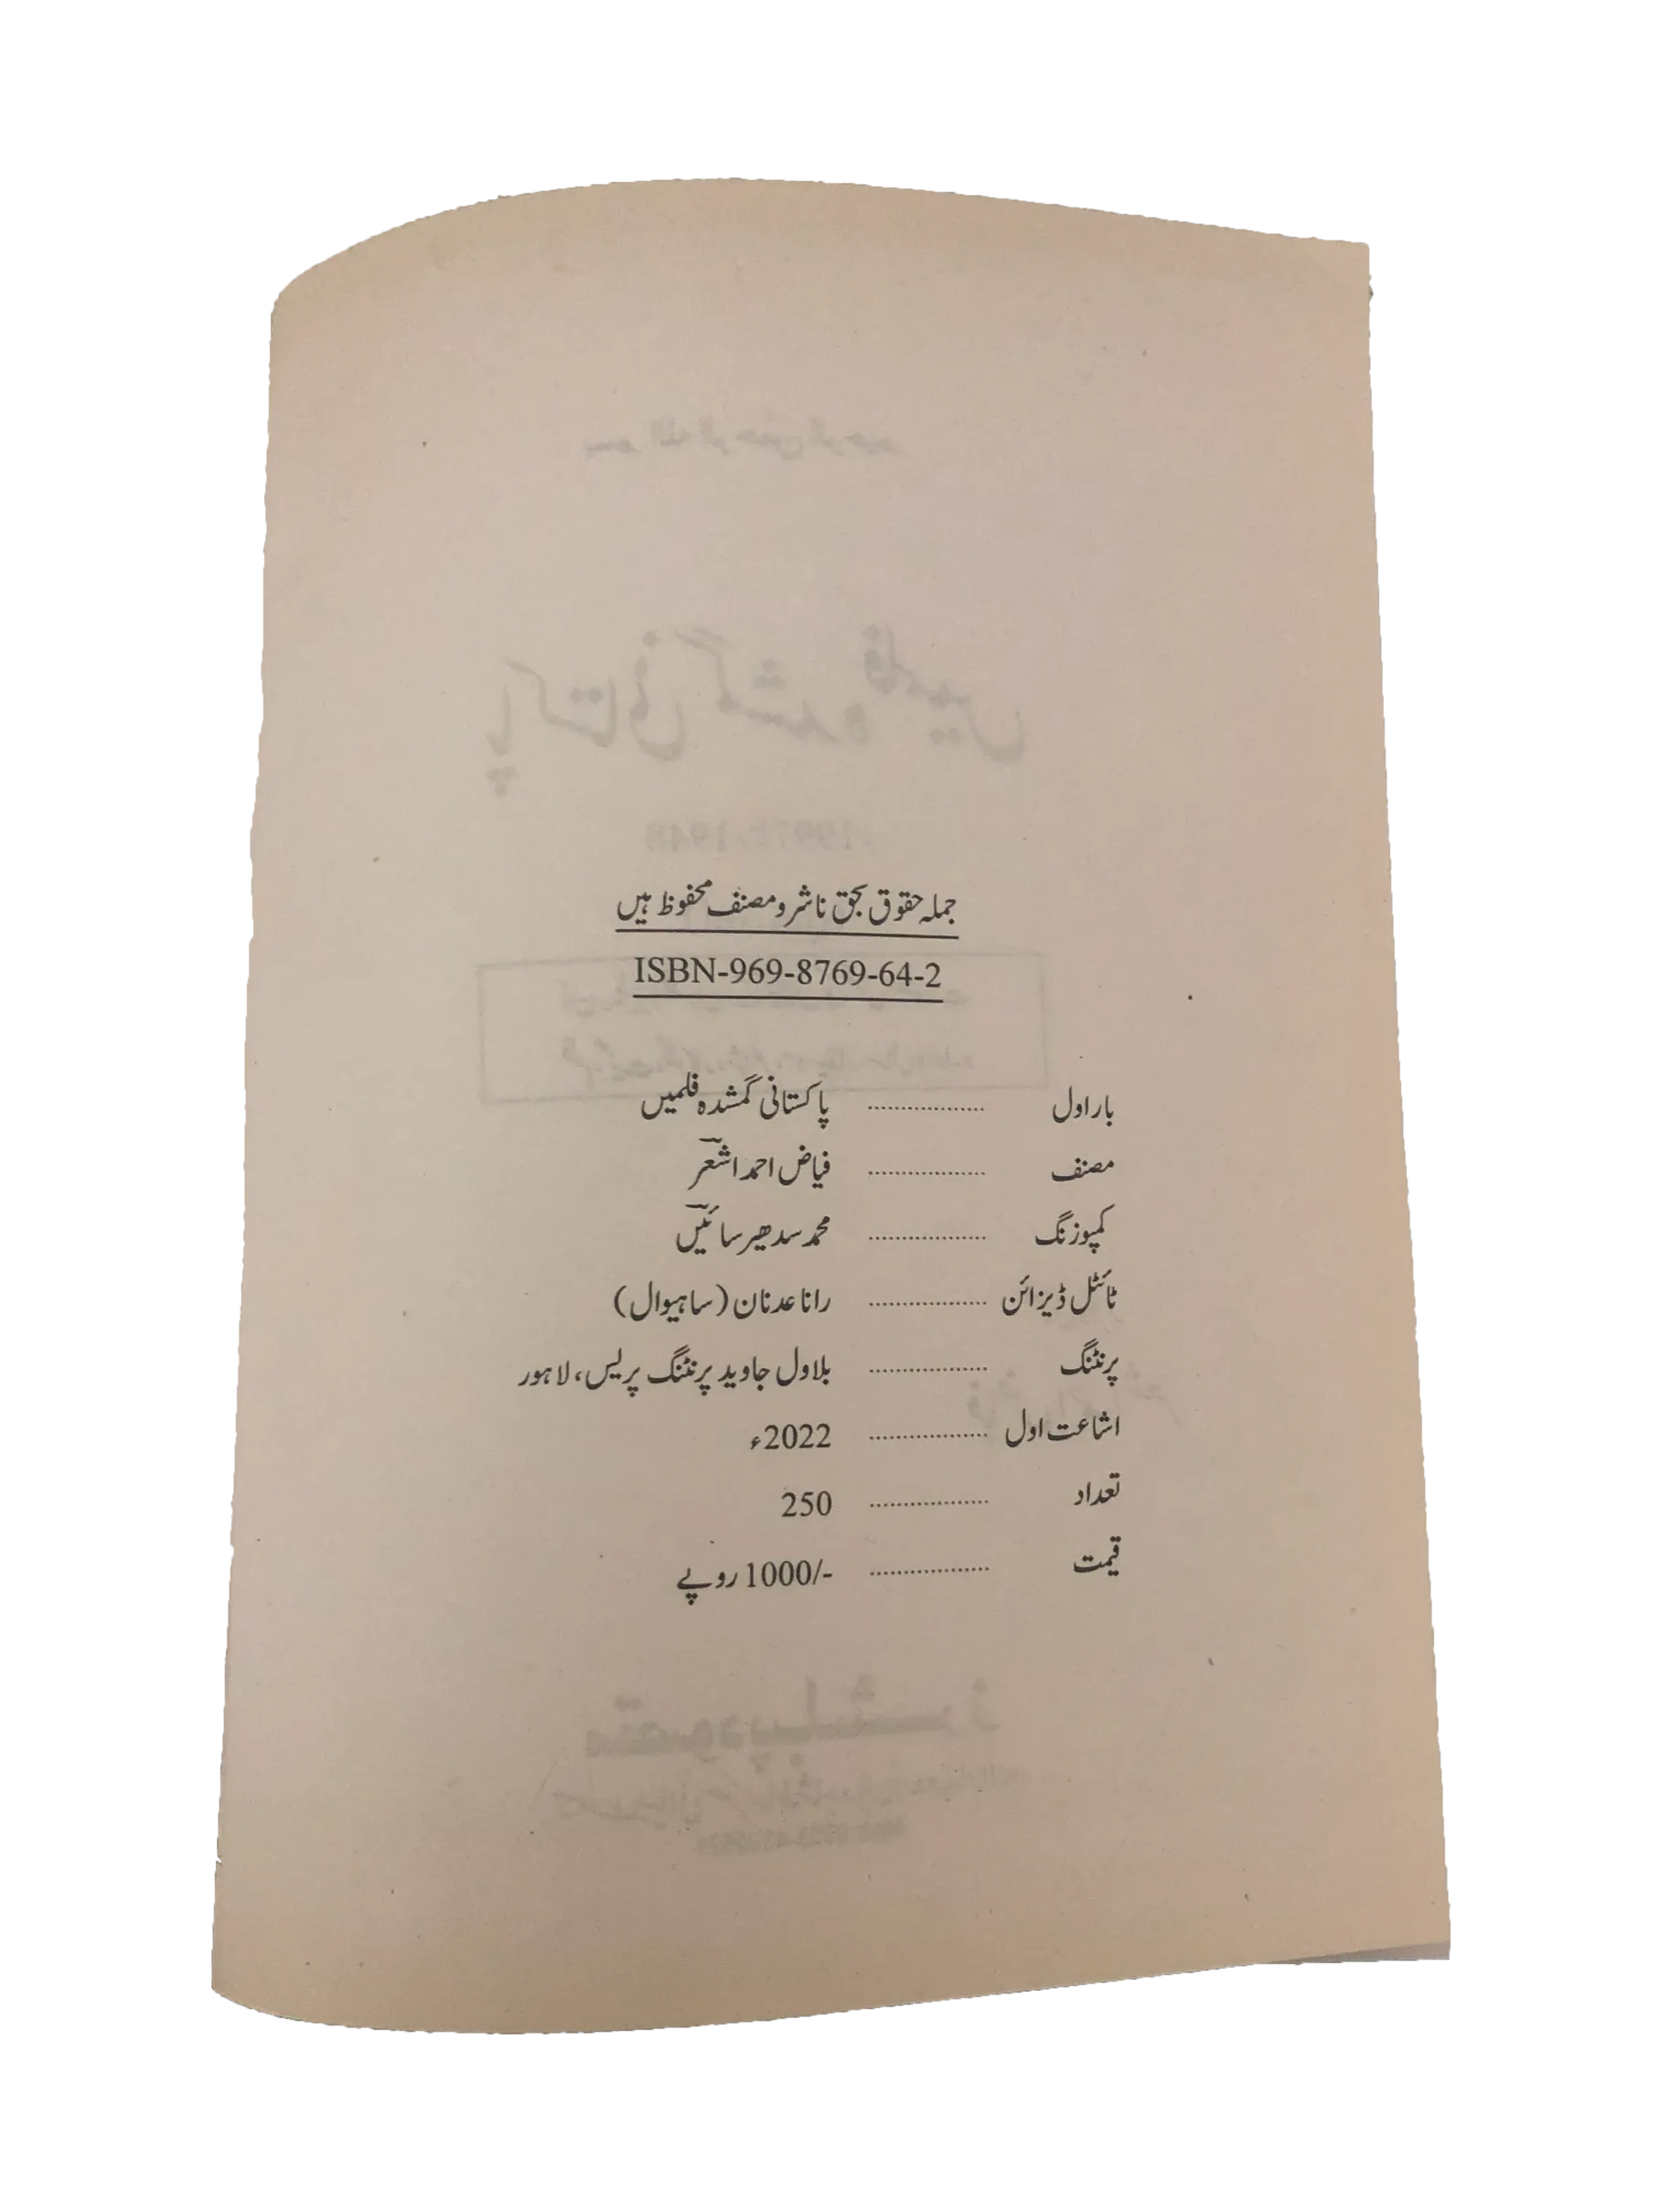 جملہ حقوق بحق ناشر و مصنف محفوظ ہیں
ISBN-969-8769-64-2
بار اول ................. پاکستانی گمشدہ فلمیں
مصنف ................. فیاض احمد اشعرؔ
کمپوزنگ ................. محمد سدھیر سائیںؔ
ٹائٹل ڈیزائن ................. رانا عدنان (ساہیوال)
پرنٹنگ ................. بلاول جاوید پرنٹنگ پریس، لاہور
اشاعت اول ................. 2022ء
تعداد ................. 250
قیمت ................. 1000/- روپے